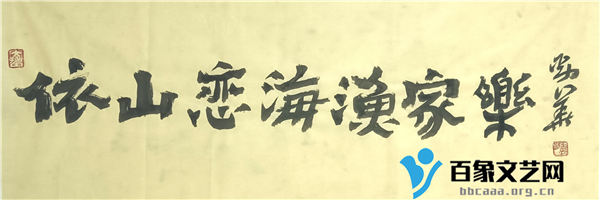 依山恋海漁家樂
百象文艺网
bbcaaa.org.cn